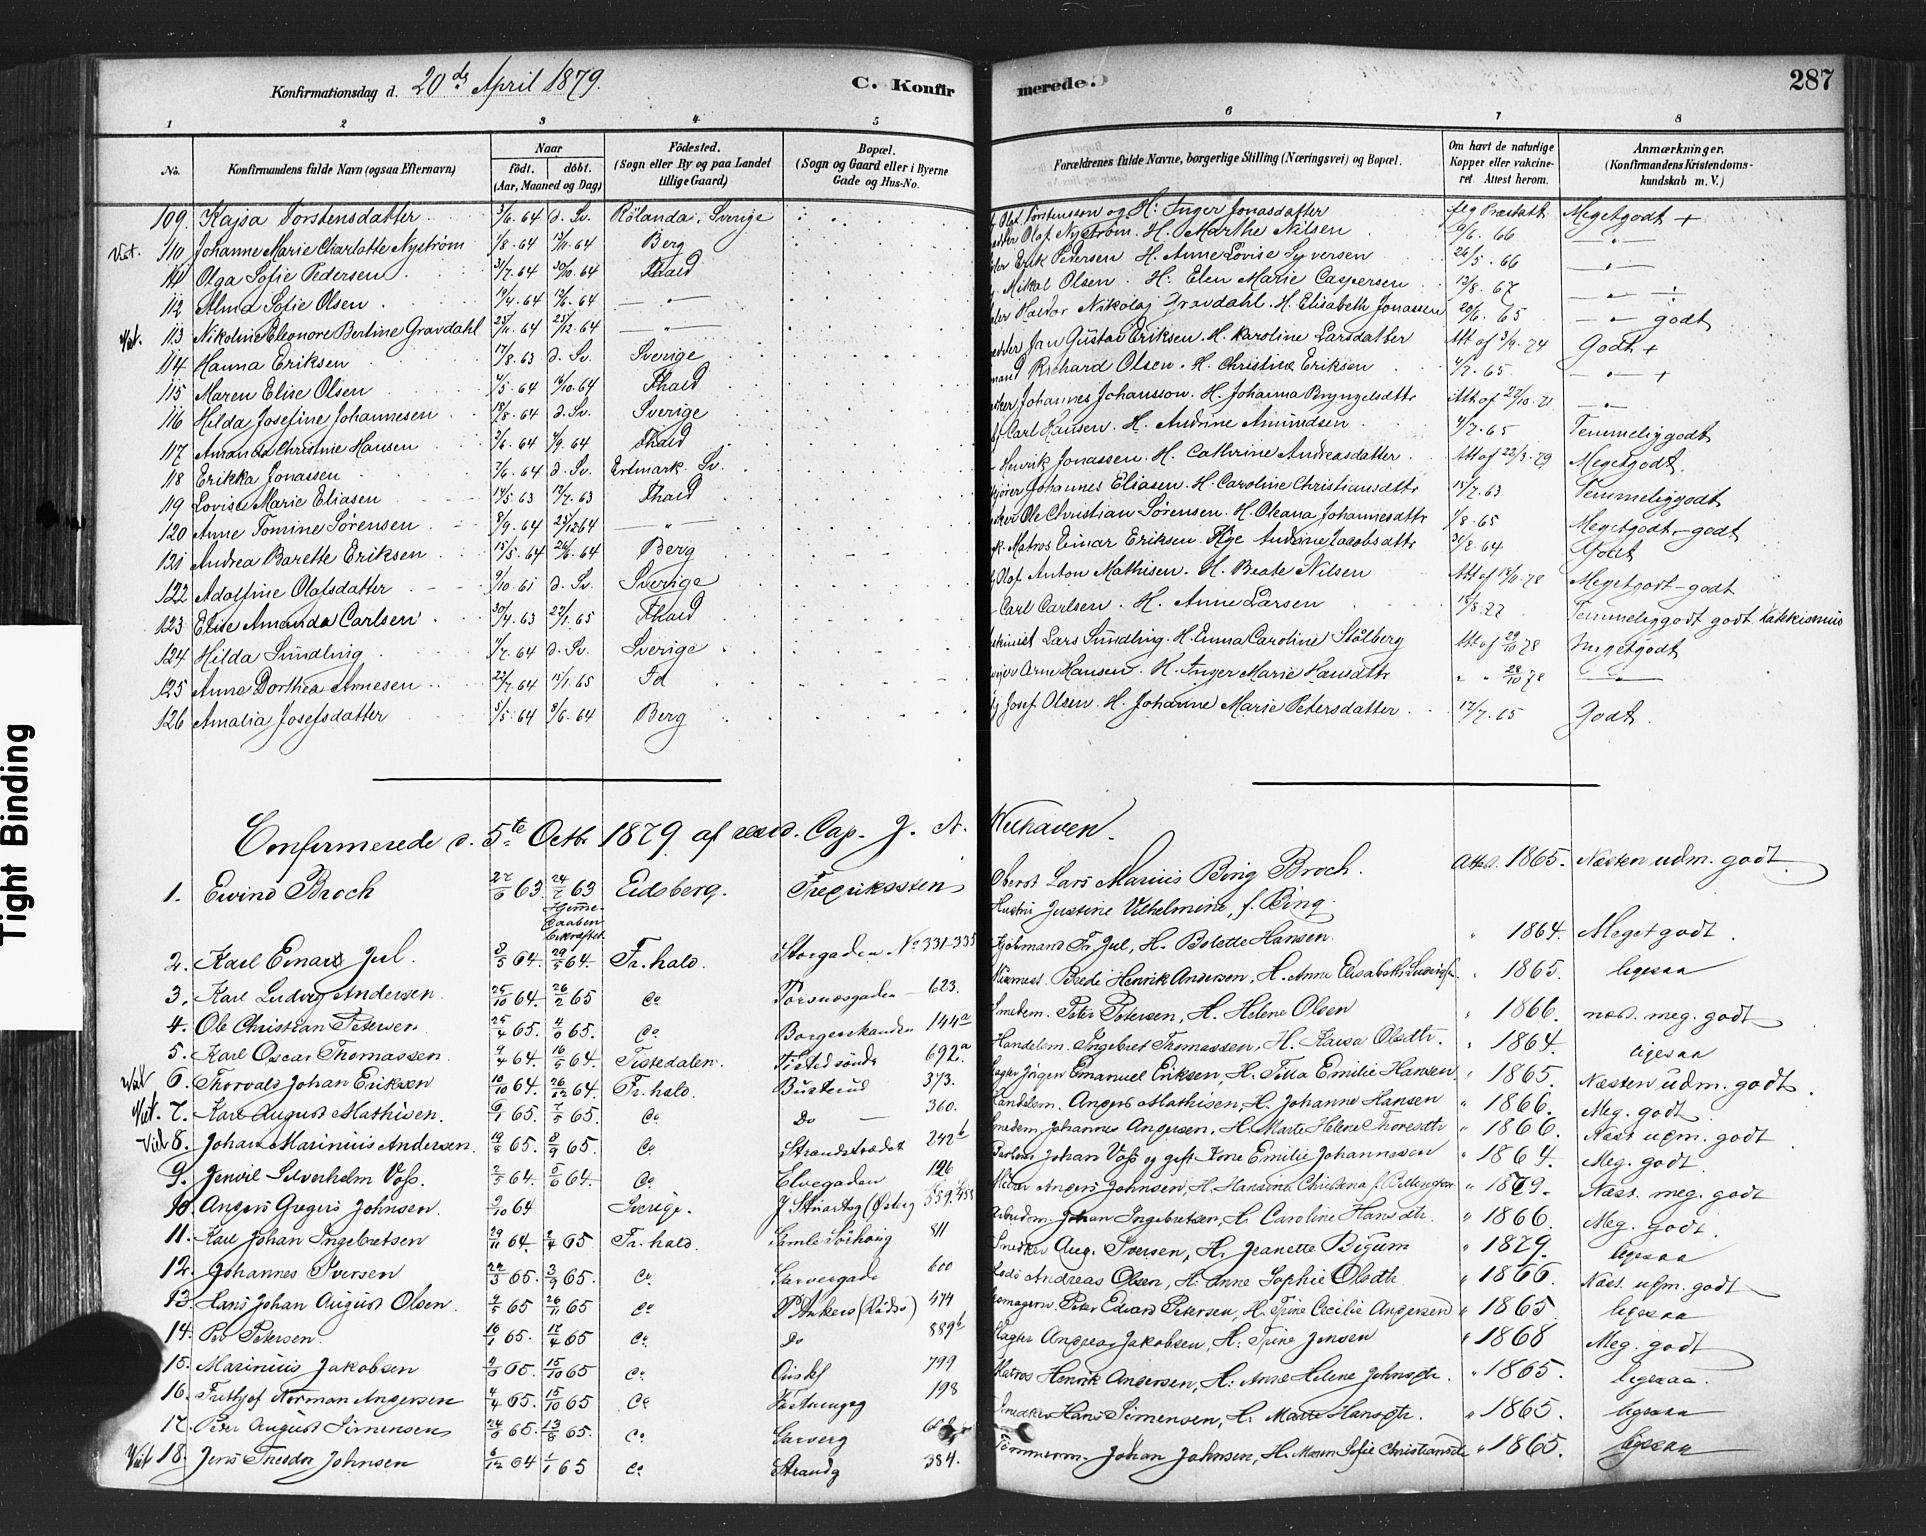 Konfirmationsdag d. 20de April 1879.
C. Konfir
merede.
287
1 2 3 4 5 6 7 8
No.
Konfirmandens fulde Navn (ogsaa Efternavn)
Naar
født. døbt.
(Aar, Maaned og Dag)
Fødested.
(Sogn eller By og paa Landet
tillige Gaard)
Bopæl.
(Sogn og Gaard eller i Byerne
Gade og Hus-No.
Forældrenes fulde Navne, borgerlige Stilling (Næringsvei) og Bopæl.
Om havt de naturlige
Kopper eller vakcine-
ret Attest herom.
Anmærkninger.
(Konfirmandens Kristendoms-
kundskab m. V.)
109. Kajsa Torstensdatter 3/6. 64 d. Sv. Rölanda, Sverige Olof Torstensson og H. Inger Jonasdatter Meget godt +
110 Johanne Marie Charlotte Nyström 1/8. 64 13/11. 64 Berg Olof Nyström. H. Marthe Nilsen 9/6. 66
111 Olga Sofie Pedersen 31/7. 64 30/10. 64 Fhald Erik Pedersen H. Anne Lovise Syversen 26/5. 66
112 Alma Sofie Olsen 19/4. 64 12/6. 64 Mikal Olsen. H. Elen Marie Caspersen 12/8. 67
113 Nikoline Eleonore Bertine Gravdahl 23/11. 64 25/12. 64 Haldor Nikolaj Gravdahl. H. Elisabeth Jonassen 20/6. 65 godt
114 Hanna Eriksen 17/8. 63 d. Sv. Sverige Jan Gustav Eriksen. H. Karoline Larsdatter Att af 3/9. 74 Godt +
115 Maren Elise Olsen 4/5. 64 16/10. 64 Fhald Richard Olsen. H. Christine Eriksen 4/7. 65
116 Hilda Josefine Johannesen 18/8. 64 d. Sv. Sverige Johannes Johansson. H. Johanna Bryngelsdttr Att af 27/10. 71
117 Amanda Christine Hansen 2/6. 64 4/9. 64 Fhald Carl Hansen. H. Andrine Amundsen 4/7. 65 Temmelig godt
118 Erikka Jonassen 7/6. 64 d. Sv. Ertmark. Sv. Henrik Jonassen. H. Cathrine Andreasdatter Att af 22/3. 79 Meget godt.
119 Lovise Marie Eliasen 14/5. 63 12/7. 63 Fhald Johannes Eliasen. H. Caroline Christiansdttr 15/7. 63 Temmelig godt
120 Anne Tomine Sørensen 8/9. 64 25/12 64 Ole Christian Sørensen. H. Oleana Johannesdttr 1/8. 65 Meget godt - godt
121 Andrea Barette Eriksen 15/5. 64 26/6. 64 Berg Matros Einar Eriksen. Andrine Jacobsdttr 31/8. 64 Godt
122 Adolfine Olafsdatter 9/10. 61 d. Sv. Sverige Olof Anton Mathisen. H. Beate Nilsen Att af 18/11. 78 Meget godt - godt
123 Elise Amanda Carlsen 30/4. 63 22/1. 65 Fhald Carl Carlsen. H. Anne Larsen 18/8. 77 Temmelig godt godt
124 Hilda Sundling 11/7. 64 d. Sv. Sverige Lars Sundling. H. Emma Caroline Stölberg Att af 29/10 78 Meget godt
125 Anne Dorthea Arnesen 22/7. 64 15/1. 65 Id Arne Hansen. H. Inger Marie Hansdttr 28/10 78
126 Amalia Josefsdatter 5/5. 64 8/6. 64 Berg Josef Olsen. H. Johanne Marie Petersdatter 12/7. 65 Godt.
Confirmerede d. 5te Octbr 1879 af resid. Cap. J. A. Welhaven.
1. Eivind Broch 63. 24/7 63 Eidsberg. Fredriksten Oberst Lars Marius Bing Broch. Attes. 1865. Næsten udm. godt
Hjemme-
Daaben
bekræftet
Hustru Justine Vilhelmine, f. Bing.
2. Karl Einar Jul. 64. 29/5 64. Fr. hald. Storgaden No 331-335 Fr. Jul, H. Bolette Hansen. 1864. Meget godt.
3. Karl Ludvig Andersen. 25/10 64. 26/2 65 Do Torsnæsgaden - 623. Henrik Andersen, H. Anne Elisabeth 1865. ligesaa
4. Ole Christian Petersen. 25/4 65. 65. Do Borgerskanden 144a Smedem. Peter Petersen, H. Helene Olsen 1866. næs. meg. godt
5. Karl Oscar Thomassen. 9/4 64. 16/5 64. Tistedalen. 692a Handelsm. Ingebret Thomassen, H. Kaisa Olsdtr. 1864. ligesaa
6. Thorvald Johan Eriksen 10/10 64. 26/12 64. Fr. hald. Busterud 373. Slagter Jørgen Emanuel Eriksen, H. Emilie Hansen 1865. Næsten udm. godt.
7. Karl August Mathisen. 6/1 65. 7/5 65. Do Do 360. Handelsm. Anders Mathisen, H. Johanne Hansen 1866. Meg. godt
8. Johan Marinius Andersen. 19/8 65. 8/9 65. Do Strandstrædet 242b Smedem. Johannes Andersen, H. Marte Helene Thoresdtr 1866. Næst. udm. godt
9. Jenvil Silverholm Voss. 2/5 64. 5/6 64. Do Elvegaden 126 Johan Voss og gift. Emilie Johannesen 1864. Meg. godt.
10. Anders Gregers Johnsen. 2/10 64 Sverige. J. Stuartsg (Østerg) Anders Johnsen, H. Hansine Christiana f. 1879. Næst. meg. godt
11. Karl Johan Ingebretsen 29/11 64. 2/4 65 Fr. hald. 811 Arbeidsm. Johan Ingebretsen, H. Caroline Hansdtr. 1866. Meg. godt.
12. Johannes Iversen 65. 3/9 65. Do Garvergade 600 Snedker Aug. Iversen, H. Jeanette Bigum 1879. ligesaa
13. Hans Johan August Olsen. 9/5 65 26/11 65 Do P. Ankers (Rødsb) 474 Lods Andreas Olsen, H. Anne Sophie Olsdtr. 1866. Næst. udm. godt
14. Per Petersen. 16/1 65. 17/4 65 Do Do 889b Peter Edvard Petersen, H. Trine Cecilie Andersen 1865 ligesaa
15. Marinius Jakobsen 65. 15/10 65 Do 799 Slagter Andreas Jakobsen, H. Trine Jensen 1868 Meg. godt
16. Frithjof Norman Andersen 4/4 65. 15/10 65 Do 198 Matros Henrik Andersen, H. Anne Helene Johnsdtr. 1865. ligesaa.
17. Peter August Simensen 65. 13/8 65. Do Garverg Snedker Hans Simensen, H. Marte Hansdtr. 1865. ligesaa
18. Jens Theodor Johnsen 6/12 64 1/1 65 Do Strandg 384. Tømmerm. Johan Johnsen, H. Maren Sofie Christiansdtr 1865. ligesaa
Tight Binding